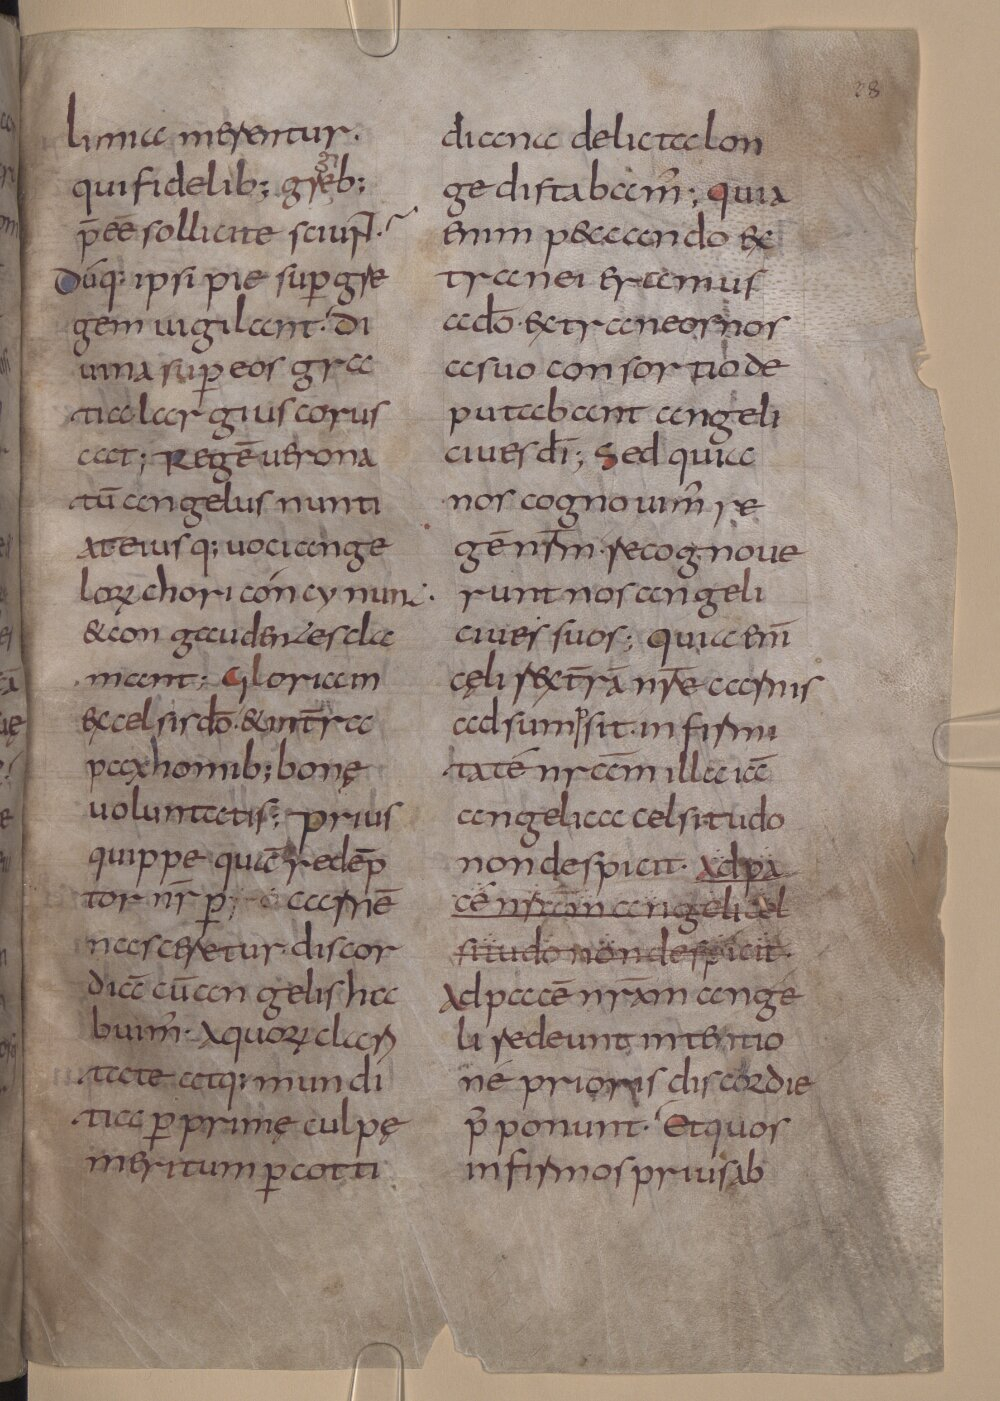 28
limia merentur.
qui fidelib; gregib;
p̄eē sollicite sciunt.
Dūq; ipsi pie sup gre
gem uigilant. di
uina sup eos gra
tia largius corus
cat; Regē uero na
tū angelus nunti
at eiusq; uoci ange
lorꝝ chori concynunt.
& con gaudentes cla
mant; Gloriam
excelsis dō. & in terra
pax hominib; bonę
uoluntatis; prius
quippe quā redēp
tor nr̄ p carnē
nasceretur. discor
diā cū angelis ha
buim̄. A quorꝝ clari
tate atq; mundi
tia p primę culpę
meritum p cotti
diana delicta lon
ge distabam̄; quia
enim peccando ex
tranei eramus
a dō. extraneos nos
a suo consortio de
putabant angeli
ciues dī; Sed quia
nos cognouim̄ re
gē nr̄m. recognoue
runt nos angeli
ciues suos; Quia enī
cęli rex trā nrē carnis
adsumpsit. infirmi
tatē nram illa iā
angelica celsitudo
non despicit. Ad pa
cē nram angeli cel
situdo non despicit.
Ad pacē nrām ange
li redeunt intentio
nē prioris discordie
p̄ponunt. Et quos
infirmos prius ab